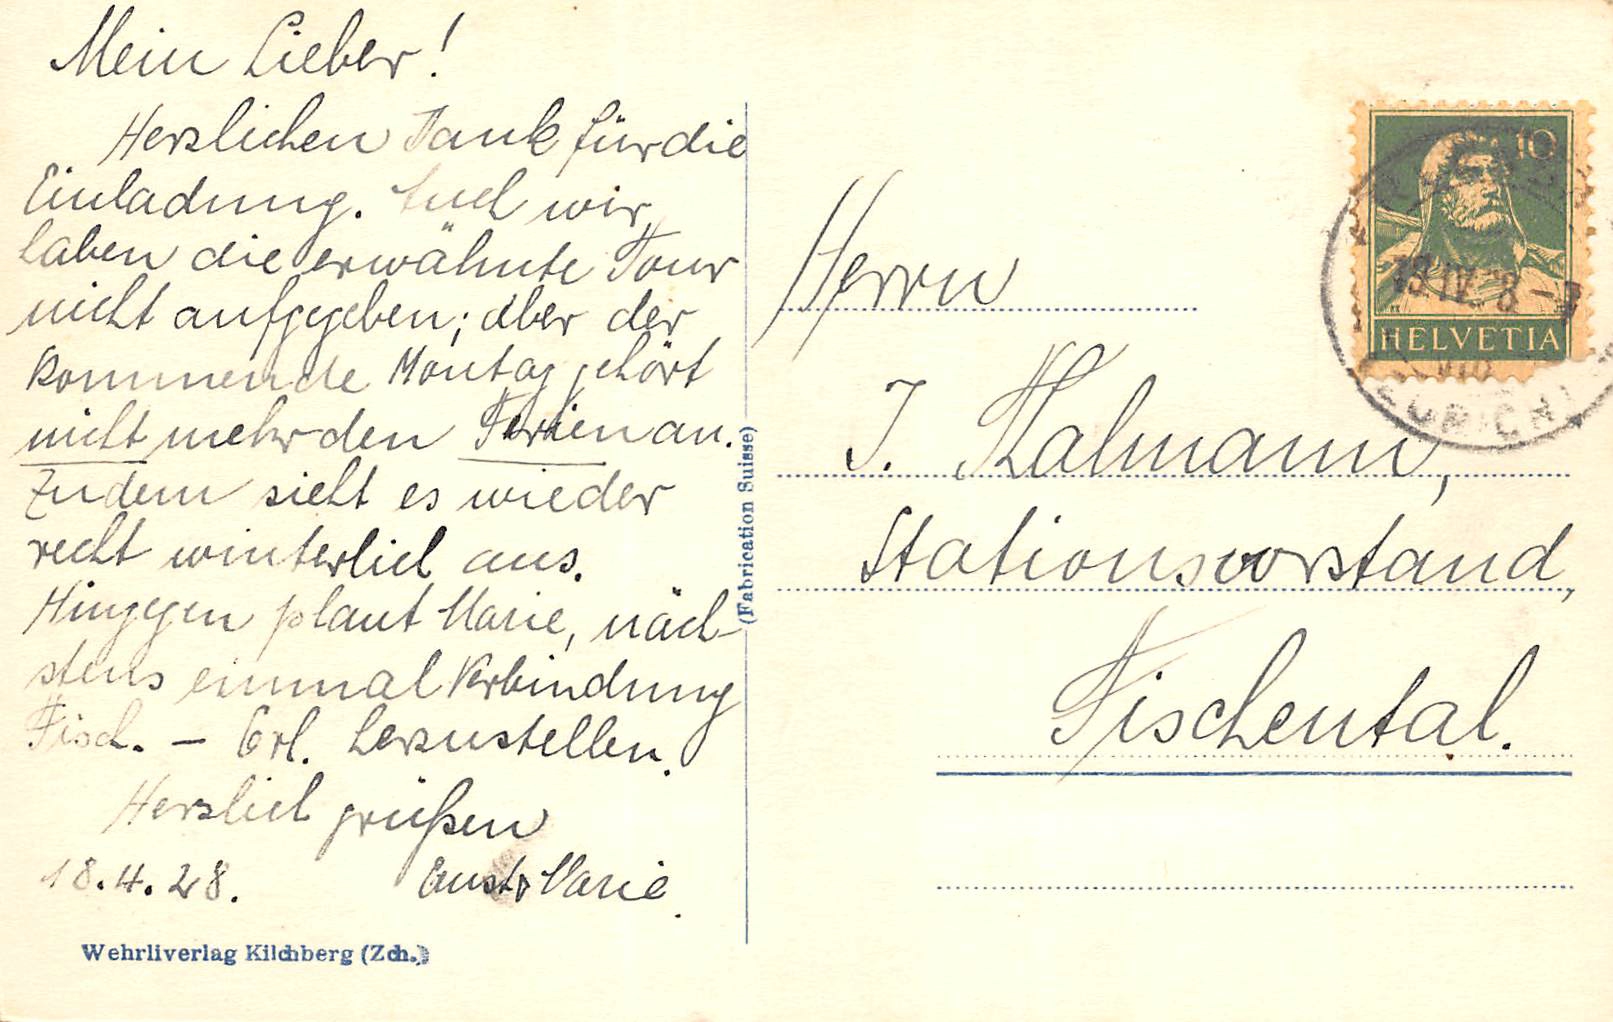 Mein Lieber!
Herzlichen Dank für die
Einladung. Auch wir
haben die erwähnte Tour
nicht aufgegeben; aber der
kommende Montag gehört
nicht mehr den Ferien an.
Zudem sieht es wieder
recht winterlich aus.
Hingegen plant Marie, näch-
stens einmal Verbindung
Fisch. – Erl. herzustellen.
Herzlich grüßen
18.4.28. Ernst & Marie.
Wehrliverlag Kilchberg (Zch.)
(Fabrication Suisse)
10
HELVETIA
ZÜRICH
Herrn
J. Kalmann,
Stationsvorstand,
Fischental.